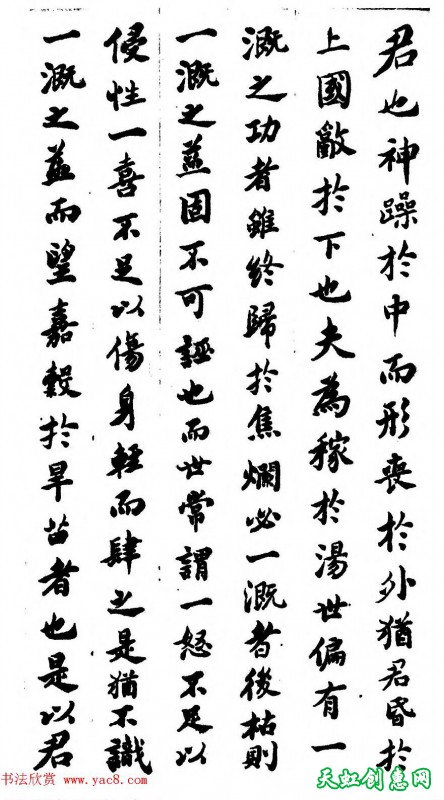 君也神躁於中而形喪於外猶君昏於
上國亂於下也夫為稼於湯世偏有一
溉之功者雖終歸於焦爛必一溉者後枯則
一溉之益固不可誣也而世常謂一怒不足以
侵性一喜不足以傷身輕而肆之是猶不識
一溉之益而望嘉穀於旱苗者也是以君
书法欣赏 www.yac8.com
天虹创惠网